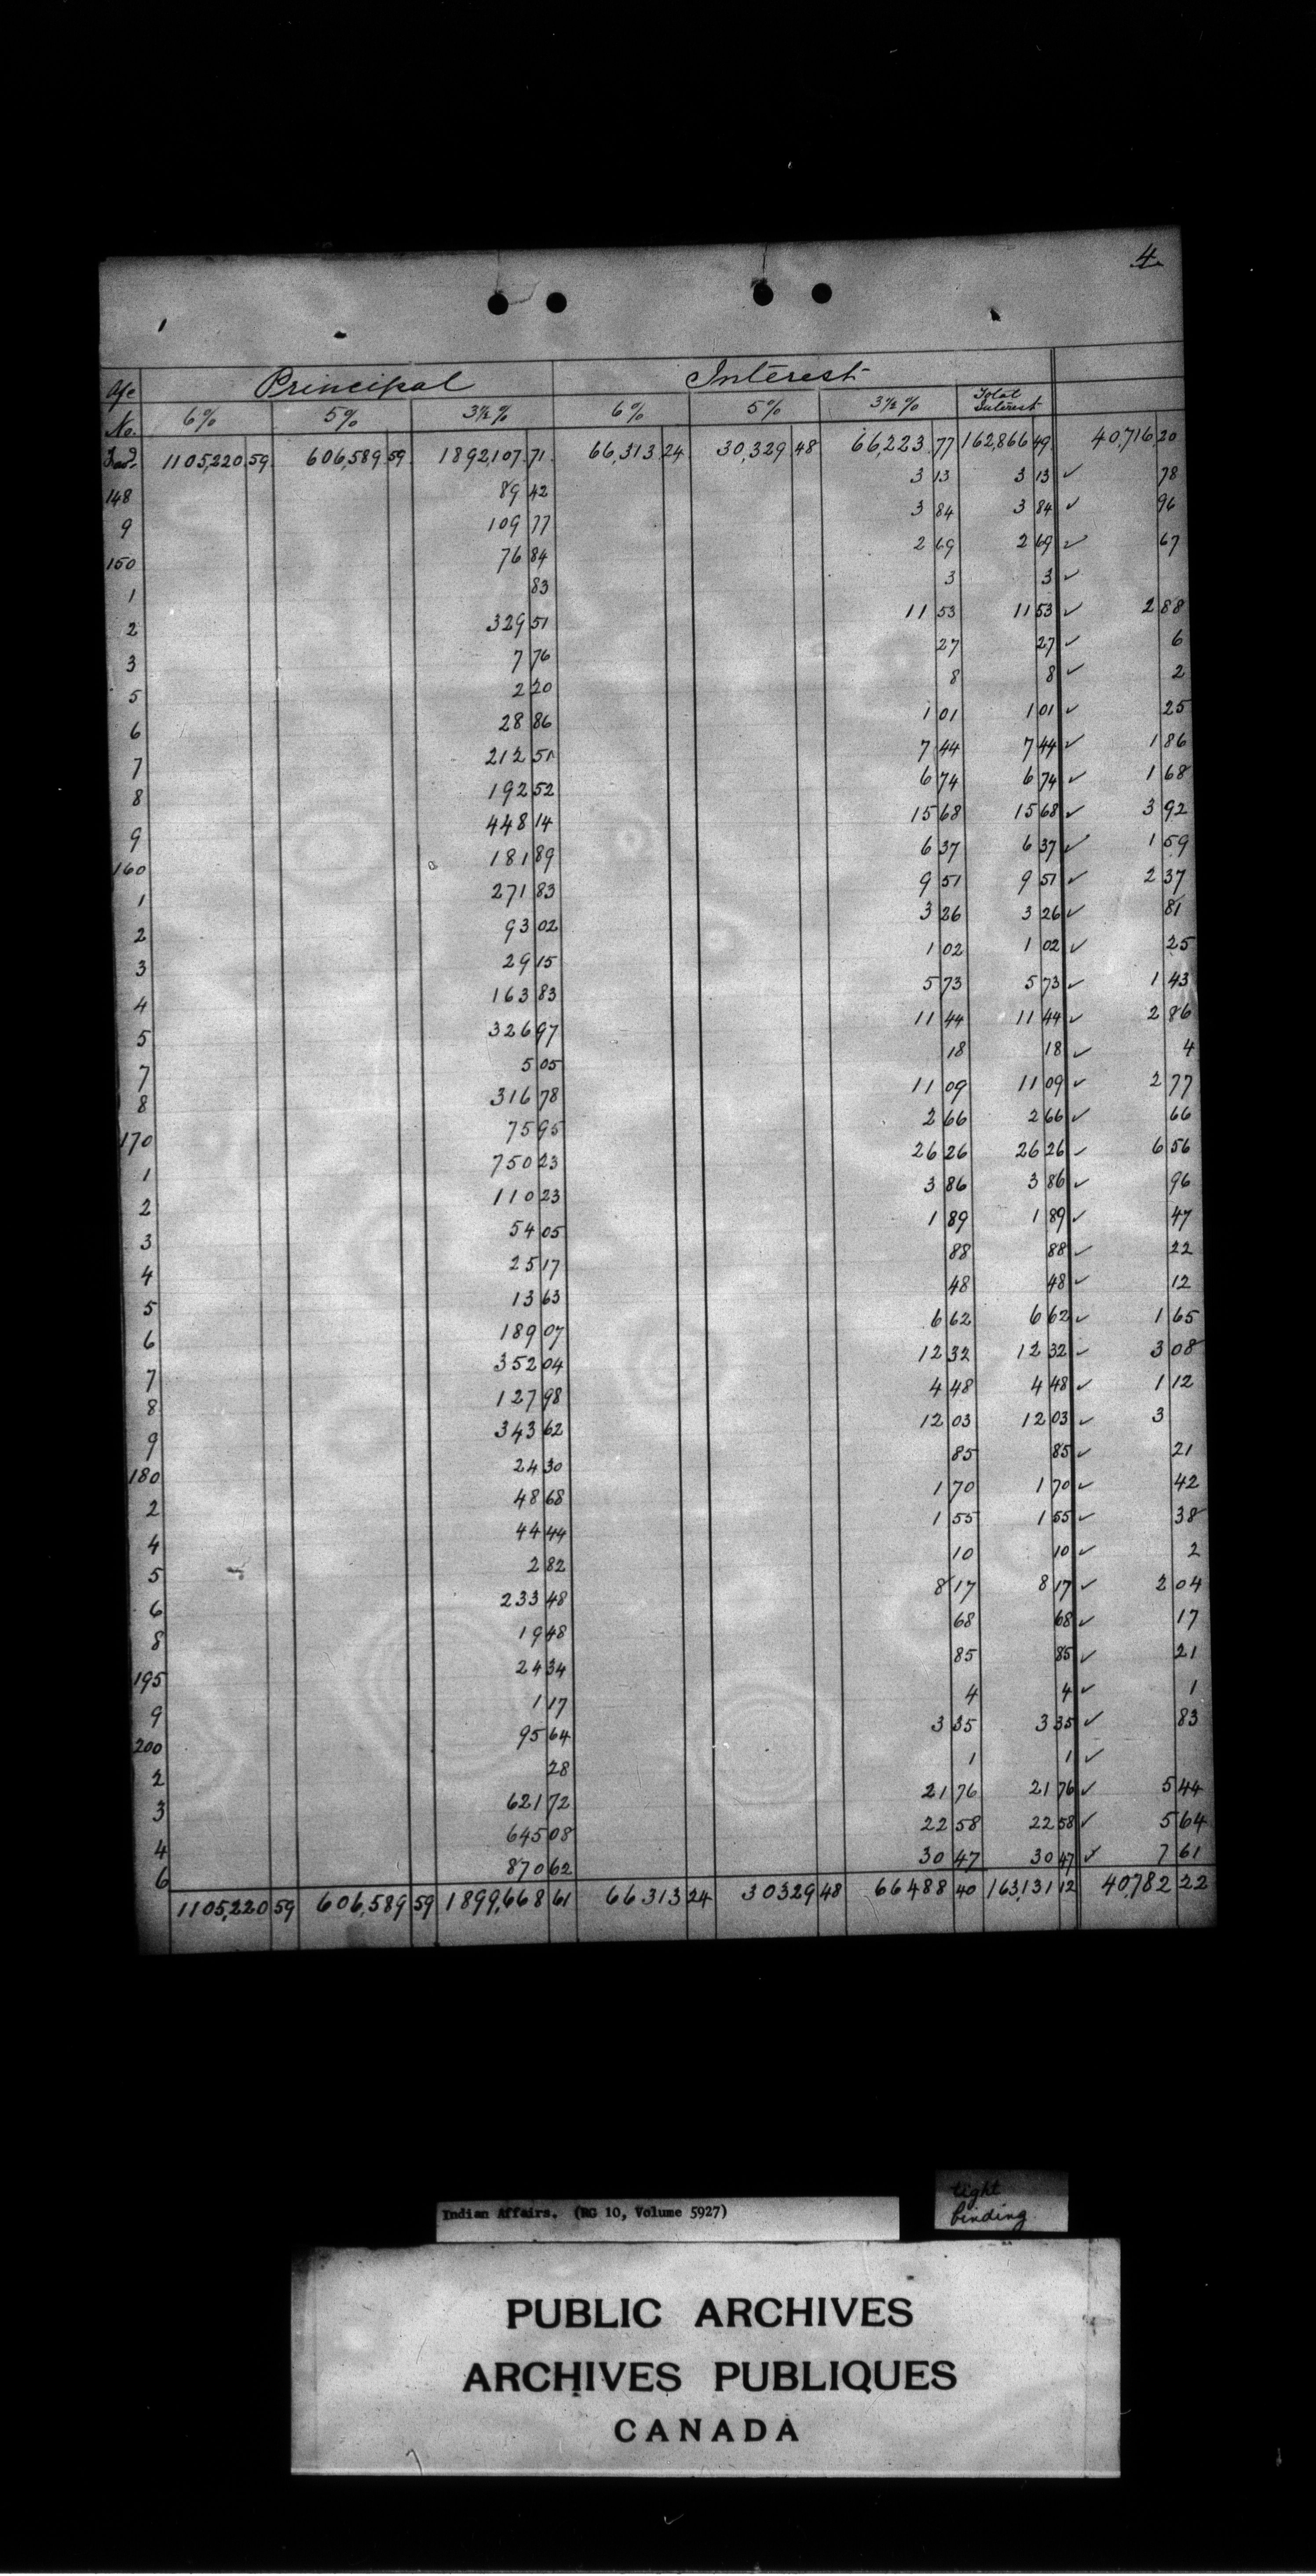 4
Principal Interest
A/c No. 6% 5% 3½% 6% 5% 3½% Total Interest
Fwd. 1105,220 59 606,589 59 1892,107 71 66,313 24 30,329 48 66,223 77 162,866 49 40,716 20
148 89 42 3 13 3 13 ✓ 78
9 109 77 3 84 3 84 ✓ 96
150 76 84 2 69 2 69 ✓ 67
1 83 3 3 ✓
2 329 51 11 53 11 53 ✓ 2 88
3 7 76 27 27 ✓ 6
5 2 20 8 8 ✓ 2
6 28 86 1 01 1 01 ✓ 25
7 212 51 7 44 7 44 ✓ 1 86
8 192 52 6 74 6 74 ✓ 1 68
9 448 14 15 68 15 68 ✓ 3 92
160 181 89 6 37 6 37 ✓ 1 59
1 271 83 9 51 9 51 ✓ 2 37
2 93 02 3 26 3 26 ✓ 81
3 29 15 1 02 1 02 ✓ 25
4 163 83 5 73 5 73 ✓ 1 43
5 326 97 11 44 11 44 ✓ 2 86
7 5 05 18 18 ✓ 4
8 316 78 11 09 11 09 ✓ 2 77
170 75 95 2 66 2 66 ✓ 66
1 750 23 26 26 26 26 ✓ 6 56
2 110 23 3 86 3 86 ✓ 96
3 54 05 1 89 1 89 ✓ 47
4 25 17 88 88 ✓ 22
5 13 63 48 48 ✓ 12
6 189 07 6 62 6 62 ✓ 1 65
7 352 04 12 32 12 32 ✓ 3 08
8 127 98 4 48 4 48 ✓ 1 12
9 343 62 12 03 12 03 ✓ 3
180 24 30 85 85 ✓ 21
2 48 68 1 70 1 70 ✓ 42
4 44 44 1 55 1 55 ✓ 38
5 2 82 10 10 ✓ 2
6 233 48 8 17 8 17 ✓ 2 04
8 19 48 68 68 ✓ 17
195 24 34 85 85 ✓ 21
9 1 17 4 4 ✓ 1
200 95 64 3 35 3 35 ✓ 83
2 28 1 1 ✓
3 621 72 21 76 21 76 ✓ 5 44
4 645 08 22 58 22 58 ✓ 5 64
6 870 62 30 47 30 47 ✓ 7 61
1105,220 59 606,589 59 1899,668 61 66313 24 30329 48 66488 40 163,131 12 40,782 22
tight
binding.
Indian Affairs. (RG 10, Volume 5927)
PUBLIC ARCHIVES
ARCHIVES PUBLIQUES
CANADA